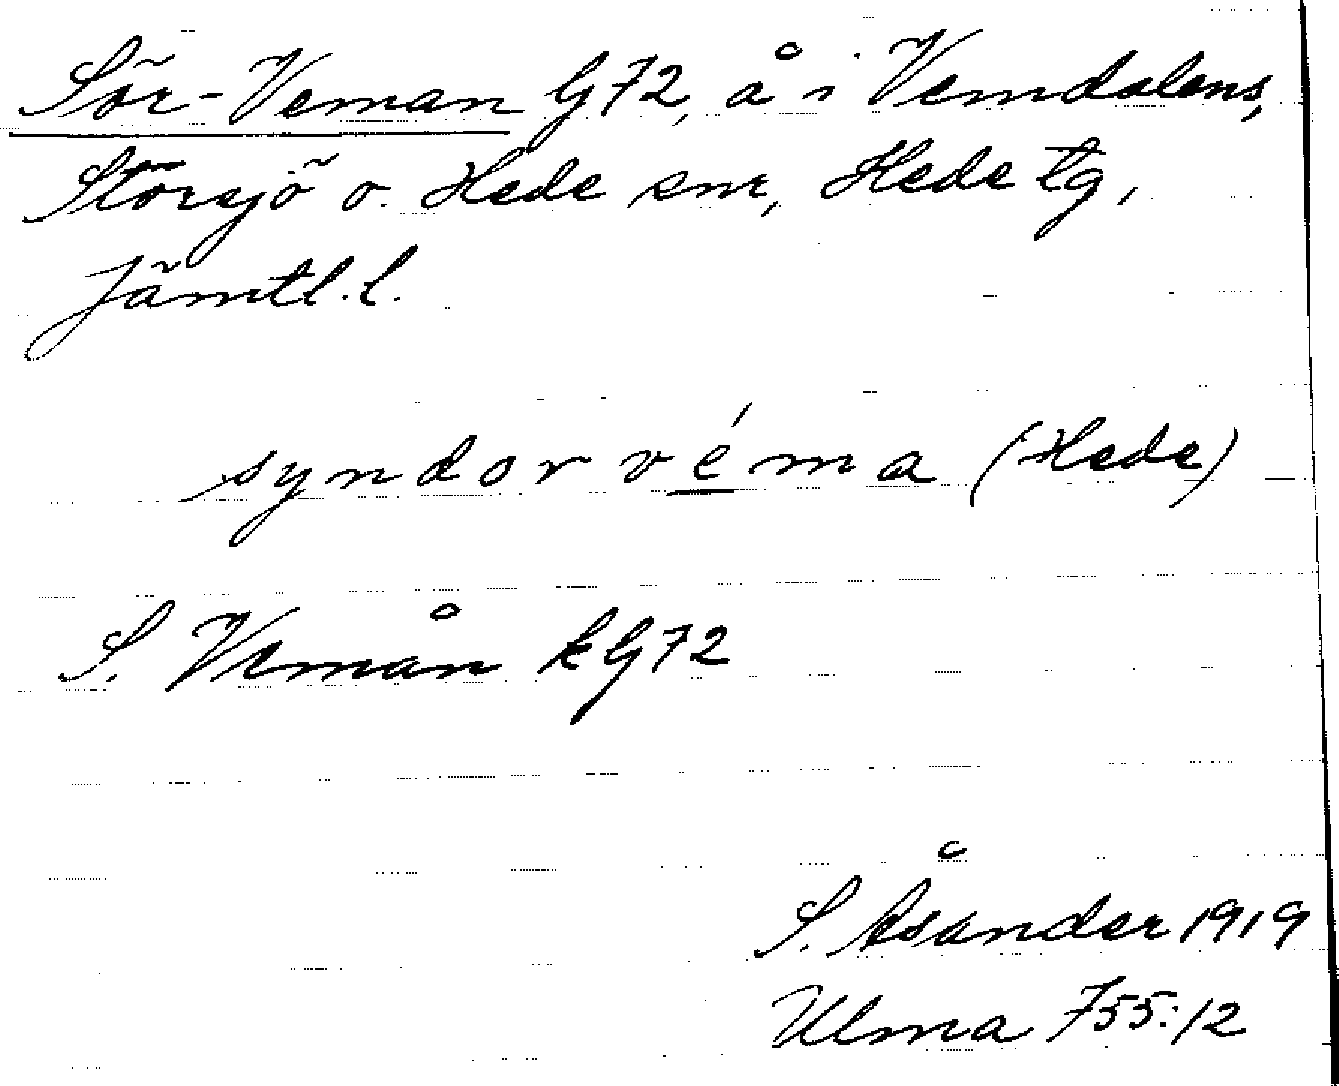 Sör-Veman G72, å i Vemdalens,
Storsjö o. Hede snr, Hede tg,
Jämtl.l.
syndorvéma (Hede)
S. Vemån kG72
S. Åsander 1919
Ulma 755:12